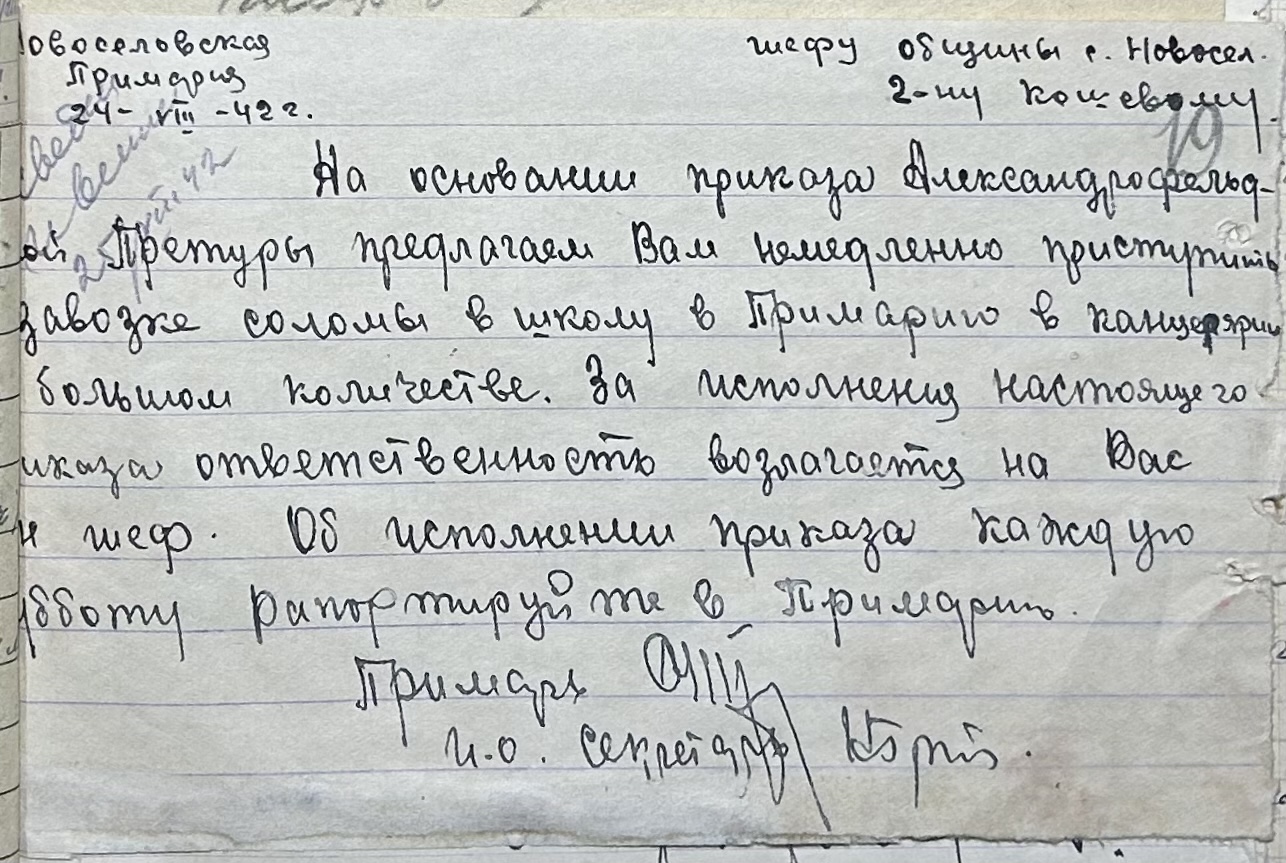 овоселовская
Примария
24-VIII-42 г.
шефу общины с. Новосел.
2-му кошевому
19
На основании приказа Александрофельд-
ой Претуры предлагаем Вам немедленно приступить
завозке соломы в школу в Примарию в канцелярии
большом количестве. За исполнения настоящего
иказа ответственность возлагается на Вас
н шеф. Об исполнении приказа каждую
убботу рапортируйте в Примарию.
Примарь
и.о. секретарь